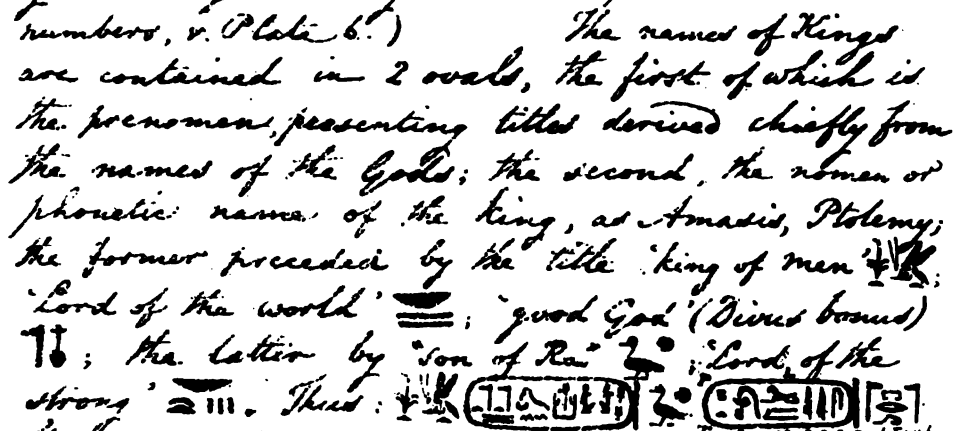 numbers, v. Plate 6.) The names of Kings
are contained in 2 ovals, the first of which is
the prenomen, presenting titles derived chiefly from
the names of the Gods; the second, the nomen or
phonetic name of the king, as Amasis, Ptolemy;
the former preceded by the title 'king of men'
'Lord of the world' ; 'good God' (Divus bonus)
; the latter by "son of Ra" ; 'Lord of the
strong' . Thus: